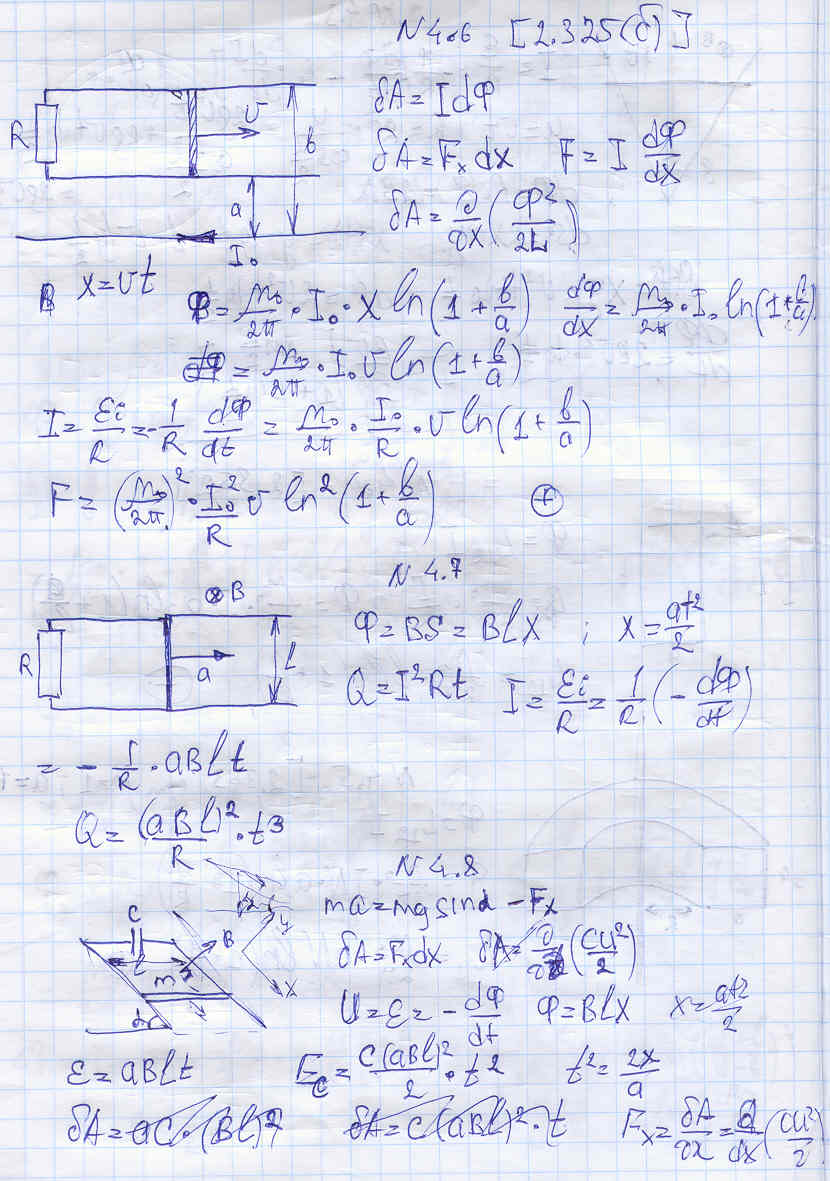 N 4.6 [2.325(б)]
δA = I dФ
R v b
δA = Fₓ dx F = I dФ/dx
a
δA = ∂/∂x (Ф²/2L)
I₀
x = vt Ф = μ₀/2π · I₀ · x ln(1 + b/a) dФ/dx = μ₀/2π · I₀ ln(1 + b/a)
dФ = μ₀/2π · I₀ v ln(1 + b/a)
I = εi/R = -1/R dФ/dt = μ₀/2π · I₀/R · v ln(1 + b/a)
F = (μ₀/2π)² · I₀²/R v ln²(1 + b/a) (+)
N 4.7
⊗ B
Ф = BS = Blx ; x = at²/2
R a l
Q = I²Rt I = εi/R = 1/R (- dФ/dt)
= - 1/R · aBlt
Q = (aBl)²/R · t³
N 4.8
ma = mg sinα - Fₓ
C l B m α y x
δA = Fₓ dx (CU²/2)
U = ε = - dФ/dt Ф = Blx x = at²/2
ε = aBlt E_C = C(aBl)²/2 · t² t² = 2x/a
δA = aC·(Bl)² δA = C(aBl)²·t Fₓ = δA/∂x = d/dx (CU²/2)